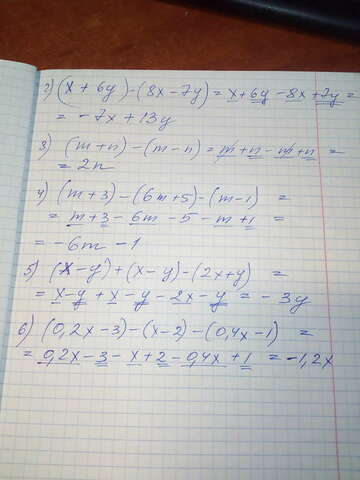 2) (x + 6y) - (8x - 7y) = x + 6y - 8x + 7y =
= -7x + 13y
3) (m + n) - (m - n) = m + n - m + n =
= 2n
4) (m + 3) - (6m + 5) - (m - 1) =
= m + 3 - 6m - 5 - m + 1 =
= -6m - 1
5) (x - y) + (x - y) - (2x + y) =
= x - y + x - y - 2x - y = -3y
6) (0,2x - 3) - (x - 2) - (0,4x - 1) =
= 0,2x - 3 - x + 2 - 0,4x + 1 = -1,2x